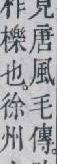 見唐風毛傳。
櫟也。徐州